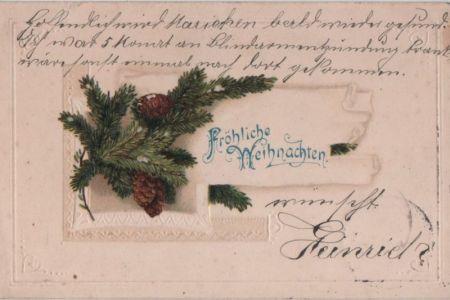 Hoffentlich wird Mariechen bald wieder gesund.
Ich war 5 Monat an Blindarmentzündung krank
wäre sonst einmal nach dort gekommen.
Fröhliche
Weihnachten.
wünscht
Heinrich